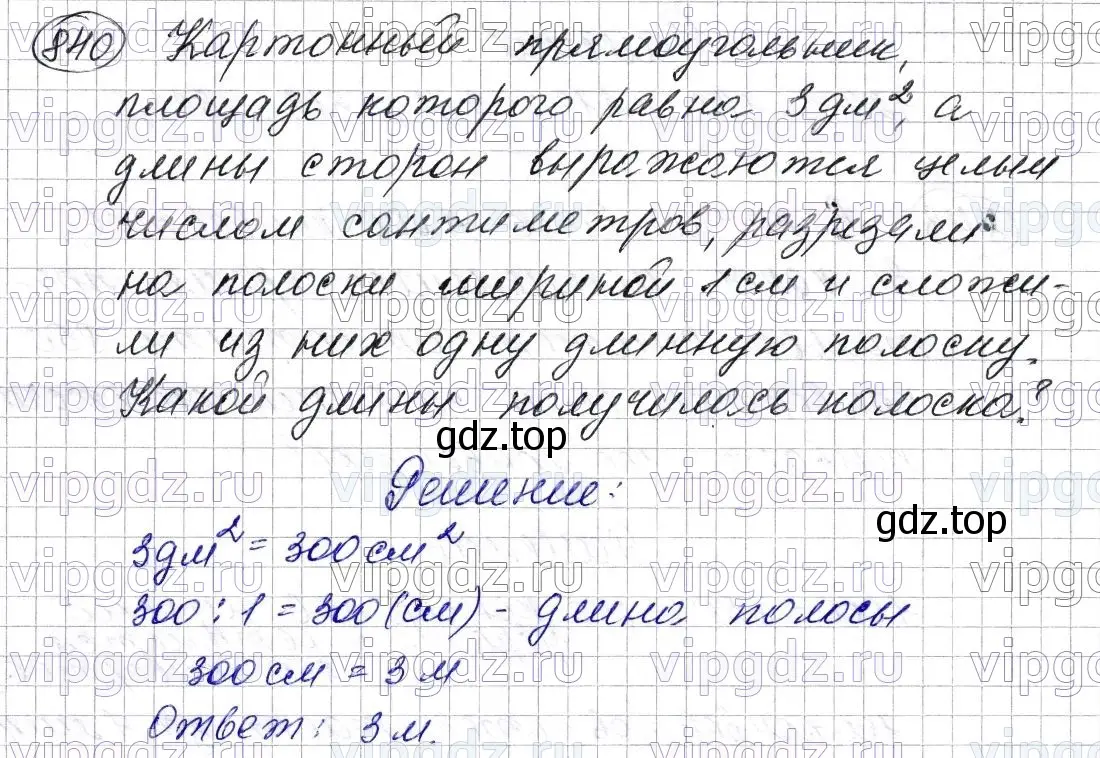 840 Картонный прямоугольник,
площадь которого равна 3 дм², а
длины сторон выражаются целым
числом сантиметров, разрезали
на полоски шириной 1 см и сложи-
ли из них одну длинную полоску.
Какой длины получилась полоска?
gdz.top
Решение:
gdz.top
3 дм² = 300 см²
300 : 1 = 300 (см) - длина полосы
300 см = 3 м
Ответ: 3 м.
vipgdz.ru